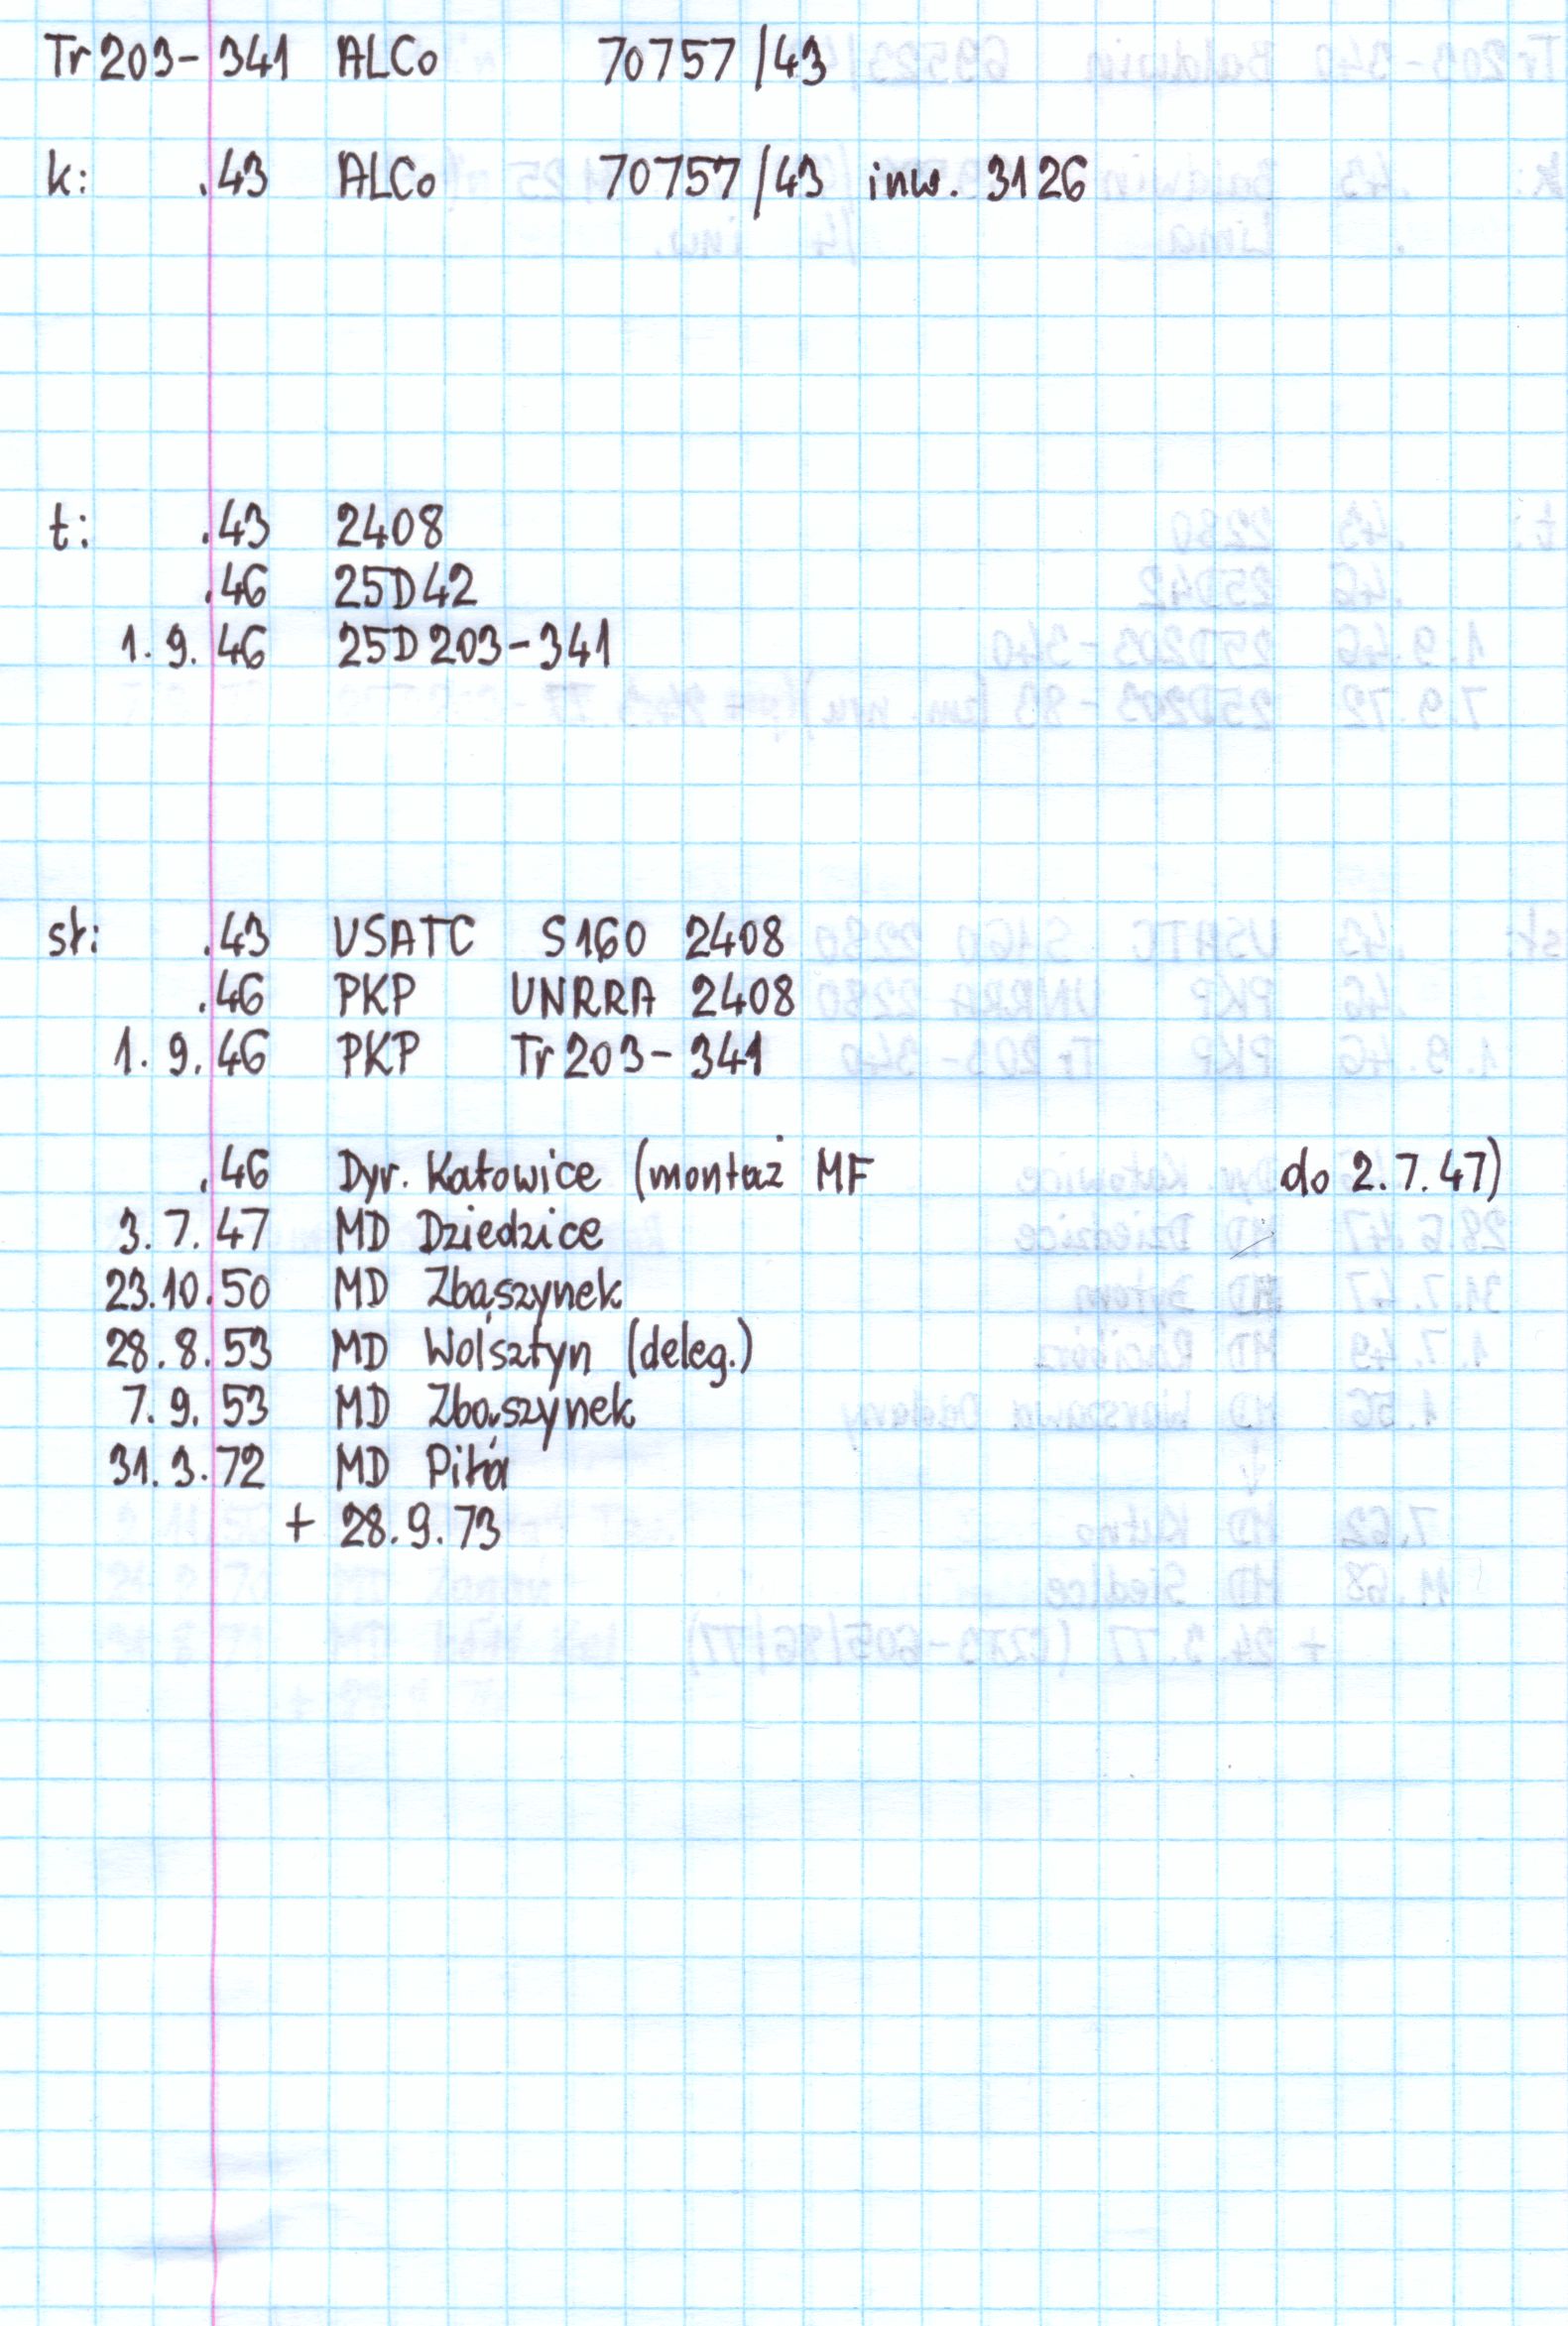 Tr203-341 ALCo 70757/43
k: .43 ALCo 70757/43 inw. 3126
t: .43 2408
.46 25D42
1.9.46 25D203-341
st: .43 USATC S160 2408
.46 PKP UNRRA 2408
1.9.46 PKP Tr203-341
.46 Dyr. Katowice (montaż MF do 2.7.47)
3.7.47 MD Dziedzice
23.10.50 MD Zbąszynek
28.8.53 MD Wolsztyn (deleg.)
7.9.53 MD Zbąszynek
31.3.72 MD Piła
+ 28.9.73